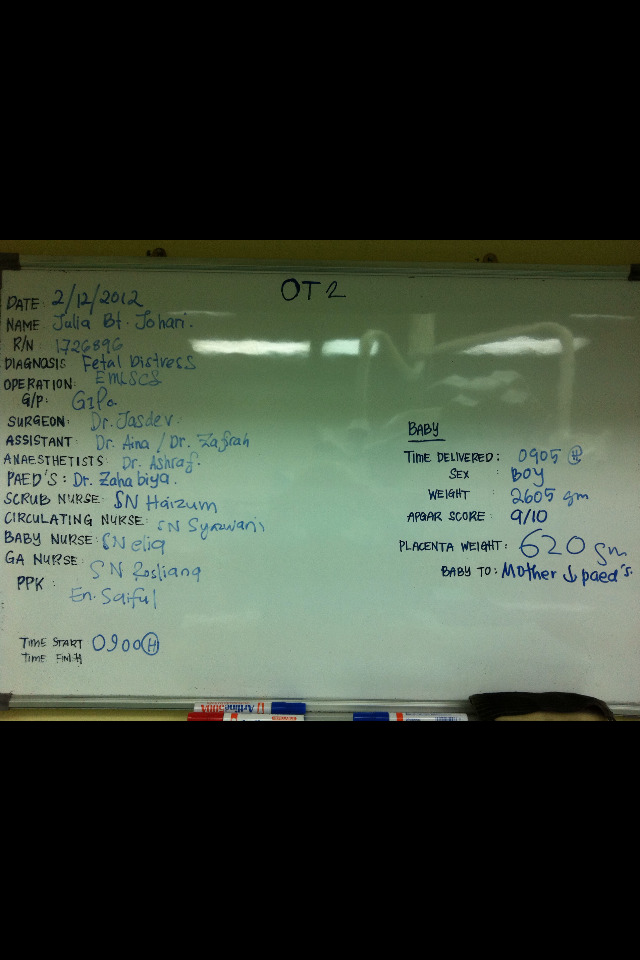 OT 2
DATE: 2/12/2012
NAME: Julia Bt. Johari.
R/N: 1726896
DIAGNOSIS: Fetal Distress
OPERATION: EMLSCS
G/P: G1P0
SURGEON: Dr. Jasdev.
ASSISTANT: Dr. Aina / Dr. Zafirah
ANAESTHETISTS: Dr. Ashraf.
PAED'S: Dr. Zahabiya.
SCRUB NURSE: SN Haizum
CIRCULATING NURSE: SN Syazwani
BABY NURSE: SN eliq
GA NURSE: SN Rosliana
PPK: En. Saiful
TIME START 0900 H
TIME FINISH
BABY
TIME DELIVERED: 0905 H
SEX: BOY
WEIGHT: 2605 gm
APGAR SCORE: 9/10
PLACENTA WEIGHT: 620 gm
BABY TO: Mother ↓ paed's.
Artline 500A